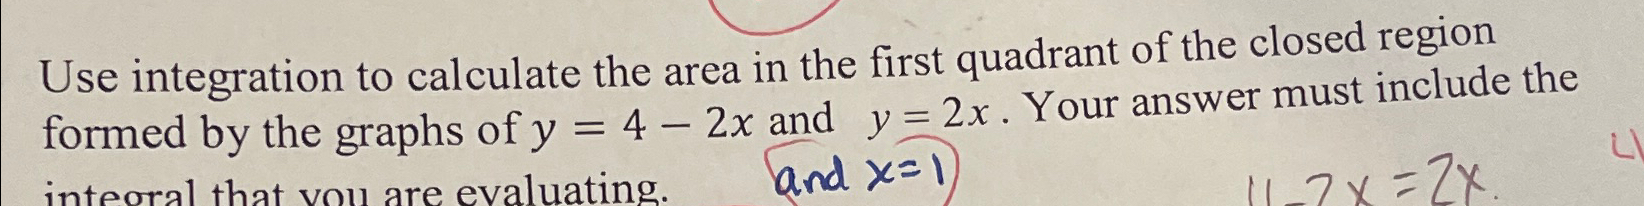 Use integration to calculate the area in the first quadrant of the closed region
formed by the graphs of y = 4 − 2x and y = 2x. Your answer must include the
integral that you are evaluating.
and x=1
4-2x=2x.